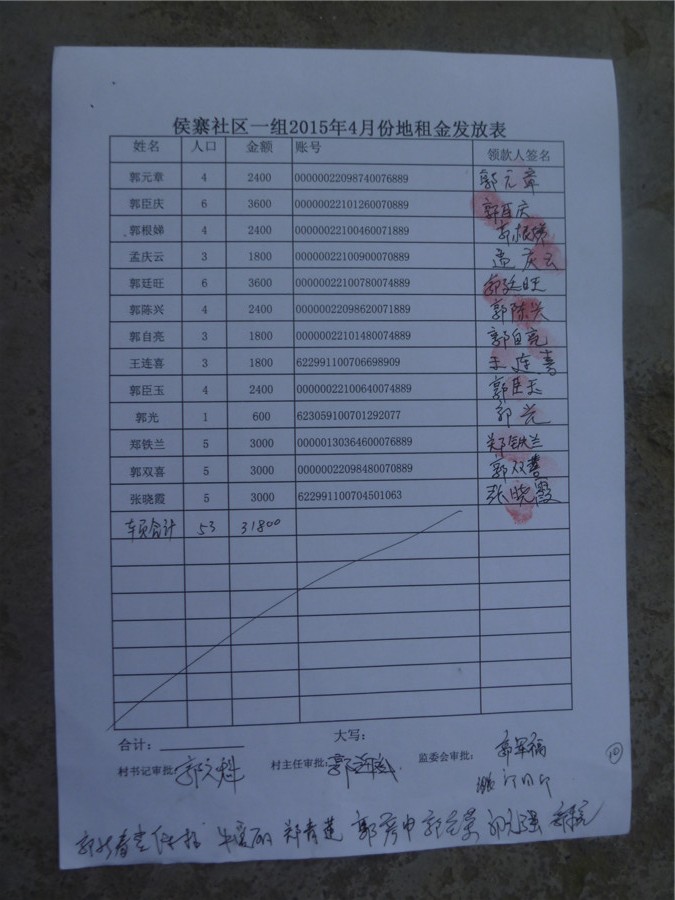 侯寨社区一组2015年4月份地租金发放表
姓名 人口 金额 账号 领款人签名
郭元章 4 2400 00000022098740076889 郭元章
郭臣庆 6 3600 00000022101260070889 郭臣庆
郭根娣 4 2400 00000022100460071889 郭根娣
孟庆云 3 1800 00000022100900070889 孟庆云
郭廷旺 6 3600 00000022100780074889 郭廷旺
郭陈兴 4 2400 00000022098620071889 郭陈兴
郭自亮 3 1800 00000022101480074889 郭自亮
王连喜 3 1800 622991100706698909 王连喜
郭臣玉 4 2400 00000022100640074889 郭臣玉
郭光 1 600 623059100701292077 郭光
郑铁兰 5 3000 00000130364600076889 郑铁兰
郭双喜 5 3000 00000022098480070889 郭双喜
张晓霞 5 3000 622991100704501063 张晓霞
本页合计 53 31800
合计： 大写：
村书记审批： 郭文魁 村主任审批： 监委会审批： 郭军福
10
郑青莲